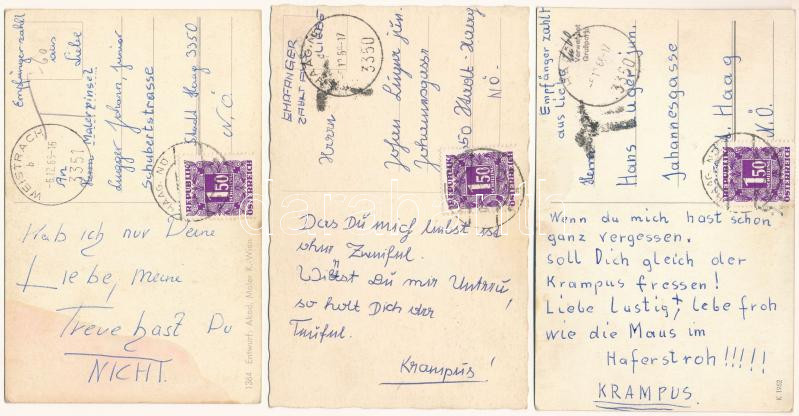 Empfänger zahlt
aus
Liebe
An
Herrn Malerpinsel
Lugger Johann, junior
Schubertstrasse
Stadt Haag 3350
N.Ö.
WEISTRACH
b
-5.12.69-16
3351
HAAG, NÖ
REPUBLIK
1.50
ÖSTERREICH
Hab ich nur Deine
Liebe, meine
Treue hast Du
NICHT.
1364 Entwurf: Akad. Maler K. Wien
EMPFÄNGER
ZAHLT
LIEBE
HAAG
3350
Herrn
Johann Luger jun.
Johannesgasse
3350 Stadt-Haag
NÖ-
REPUBLIK
1.50
ÖSTERREICH
Das Du mich liebst ist
ohne Zweifel.
Wirst Du mir Untreu
so holt Dich der
Teufel. !
Krampus!
Empfänger zahlt
aus Liebe
3350
Herrn
Hans Luger jun.
Johannesgasse
Haag
N.Ö.
HAAG, NÖ
REPUBLIK
1.50
ÖSTERREICH
Wenn du mich hast schon
ganz vergessen.
soll Dich gleich der
Krampus fressen!
Liebe Lustig, lebe froh
wie die Maus im
Haferstroh !!!!!
KRAMPUS.
K 1982
darabanth